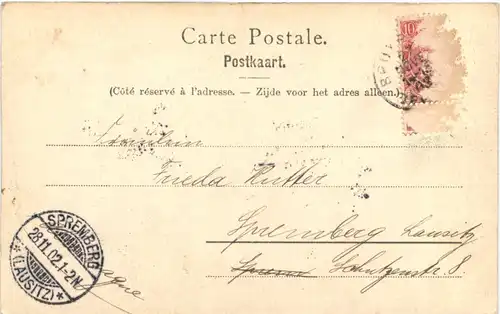 Carte Postale.
Postkaart.
(Côté réservé à l'adresse. — Zijde voor het adres alleen.)
10
Fräulein
Frieda Rutter
Spremberg Lausitz
Schützenstr. 8.
SPREMBERG
28.11.02.1-2N.
*(LAUSITZ)*